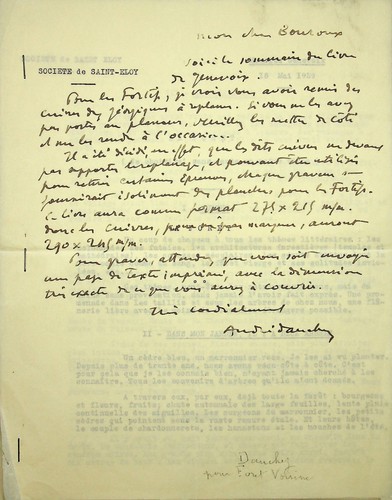 mon cher Bouroux
SOCIETE de SAINT-ELOY
voici le sommaire du livre
de Genevoix
Pour les Fortifs, je crois vous avoir remis des
cuivres des Géorgiques à replaner. Si vous ne les avez
pas portés au planeur, veuillez les mettre de côté
et me les rendre à l'occasion.
Il a été décidé, en effet, que les dits cuivres ne devant
pas apporter le replanage, et pouvant être utilisés
pour retirer certaines épreuves, chaque graveur se
fournirait isolément des planches pour les Fortifs.
Ce livre aura comme format 275 x 215 m/m.
donc les cuivres, marges, auront
290 x 245 m/m.
Pour graver, attendez que vous soit envoyé
une page de texte imprimé, avec la dimension
très exacte de ce que vous aurez à couvrir.
Très cordialement
André Dauchez
Dauchez
pour